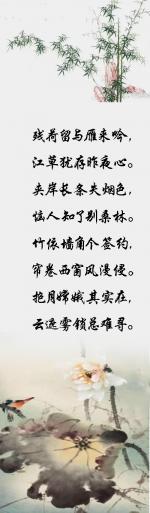 残荷留与雁来吟，
江草犹存昨夜心。
夹岸长条失烟色，
恼人知了别桑林。
竹依墙角个签约，
帘卷西窗风漫侵。
抱月嫦娥其实在，
云遮雾锁总难寻。